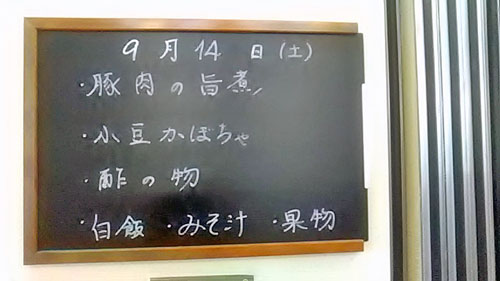 9月14日(土)
・豚肉の旨煮
・小豆かぼちゃ
・酢の物
・白飯 ・みそ汁 ・果物